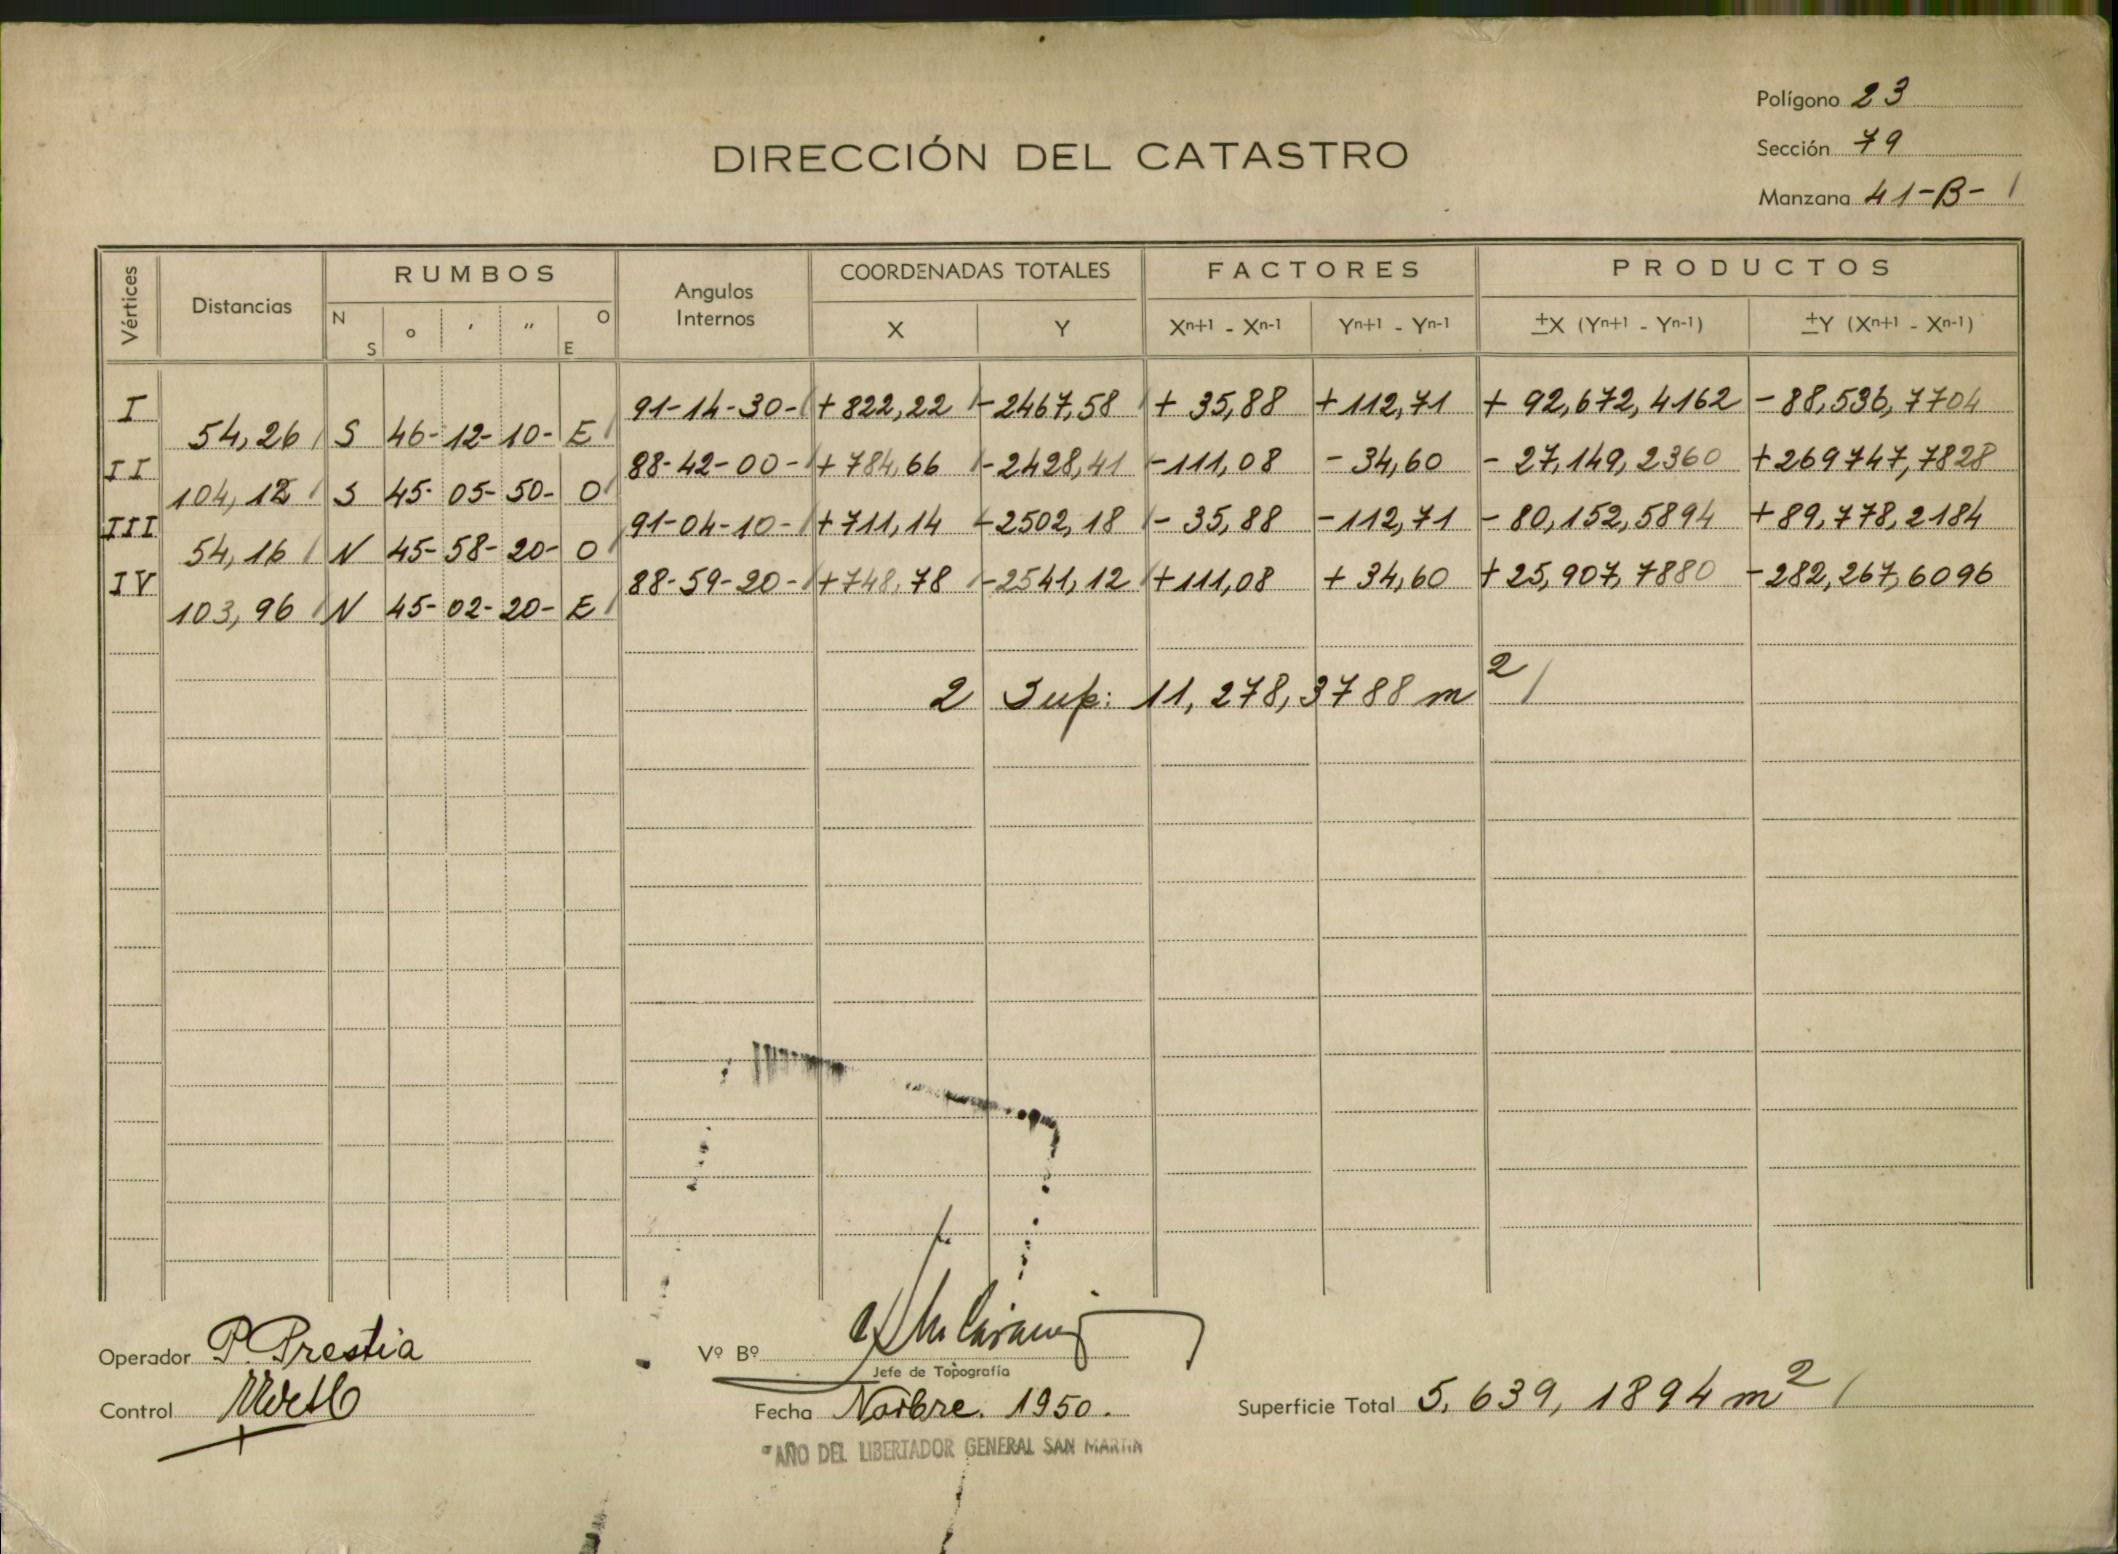 Polígono 23
DIRECCIÓN DEL CATASTRO
Sección 79
Manzana 41-B-
Vértices Distancias RUMBOS Angulos Internos COORDENADAS TOTALES FACTORES PRODUCTOS
N S ° ' " O E X Y Xn+1 - Xn-1 Yn+1 - Yn-1 ±X (Yn+1 - Yn-1) ±Y (Xn+1 - Xn-1)
I 91-14-30- +822,22 -2467,58 + 35,88 +112,71 + 92,672,4162 -88,536,7704
54,26 S 46- 12- 10- E
II 88-42-00- +784,66 -2428,41 -111,08 - 34,60 - 27,149,2360 +269747,7828
104,12 S 45- 05- 50- O
III 91-04-10- +711,14 -2502,18 - 35,88 -112,71 - 80,152,5894 +89,778,2184
54,16 N 45- 58- 20- O
IV 88-59-20- +748,78 -2541,12 +111,08 + 34,60 +25,907,7880 -282,267,6096
103,96 N 45- 02- 20- E
2 Sup: 11,278,3788 m2
Operador P. Prestia
Vº Bº
Jefe de Topografía
Control
Fecha Novbre. 1950.
Superficie Total 5.639,1894 m2
"AÑO DEL LIBERTADOR GENERAL SAN MARTIN